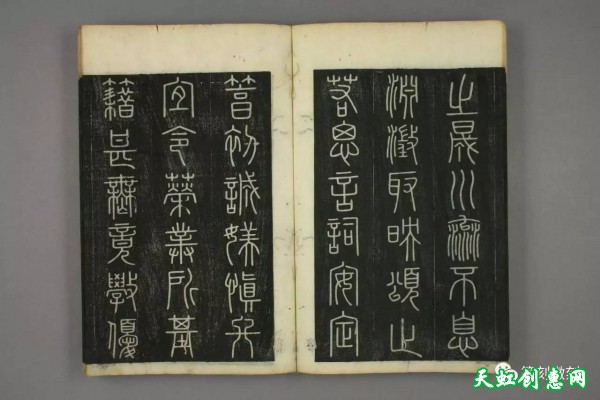 之晟川流不息
淵澂取映頌止
若思言詞安定
篤初誠媄慎終
宜令榮業所基
籍甚無竟學優
天虹创惠网